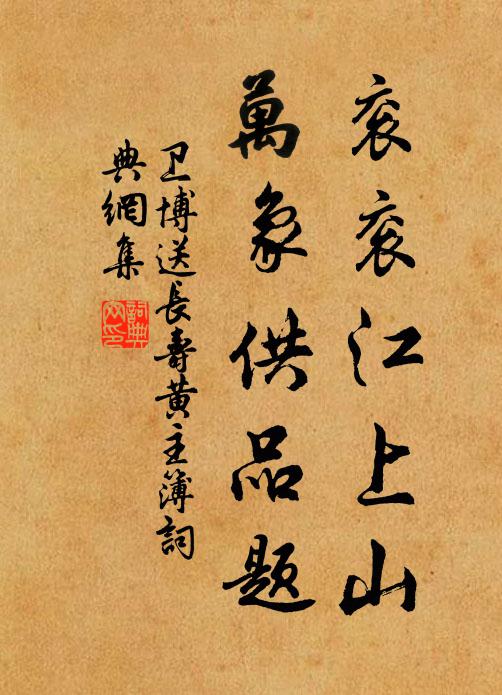 衮衮江上山
萬象供品题
卫博送長壽黄主簿詞
典網集
詞典